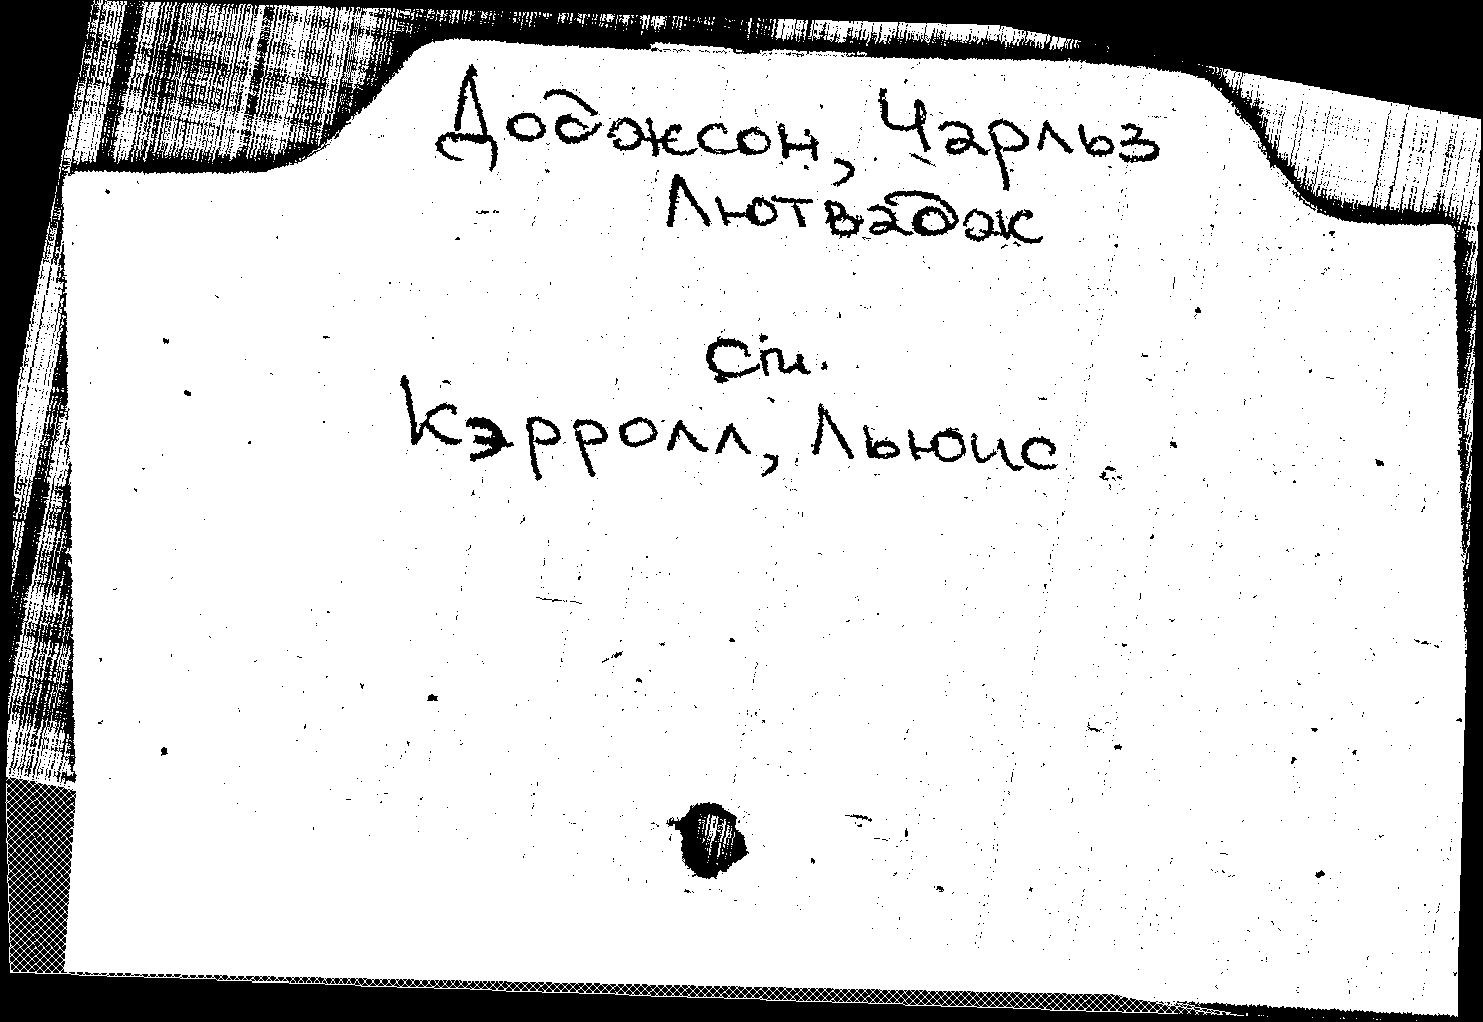 Доджсон, Чарльз
Лютвадж
см.
Кэрролл, Льюис